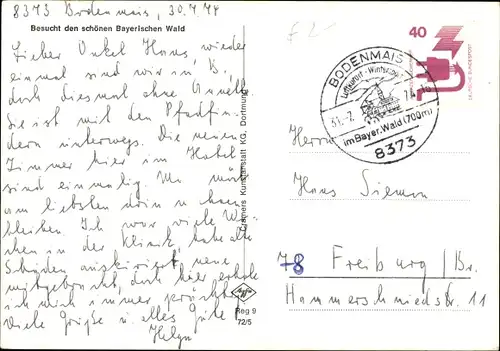 8373 Bodenmais, 30.7.74
Besucht den schönen Bayerischen Wald
Lieber Onkel Hans, wieder
einmal sind wir in B.,
doch diesmal ohne Annette
Sie ist mit den Pfadfin-
dern unterwegs. Die neuen
Zimmer hier im Hotel
sind einmalig. Man möcht
am liebsten drin
bleiben. Ich war viele Wo-
chen in der Klinik, habe alte
Schäden auskuriert, neue
mitgebracht, doch hier erhole
ich mich immer prächtig
Viele Grüße u. alles Gute!
Helga
Cramers Kunstanstalt KG, Dortmund
Agfa
Reg 9
72/5
£ 2-
40
DEUTSCHE BUNDESPOST
BODENMAIS
Luftkurort - Wintersport
31.-7. 74.-18
im Bayer. Wald (700m)
8373
Herrn
Hans Siemen
78 Freiburg/Br.
Hammerschmiedstr. 11